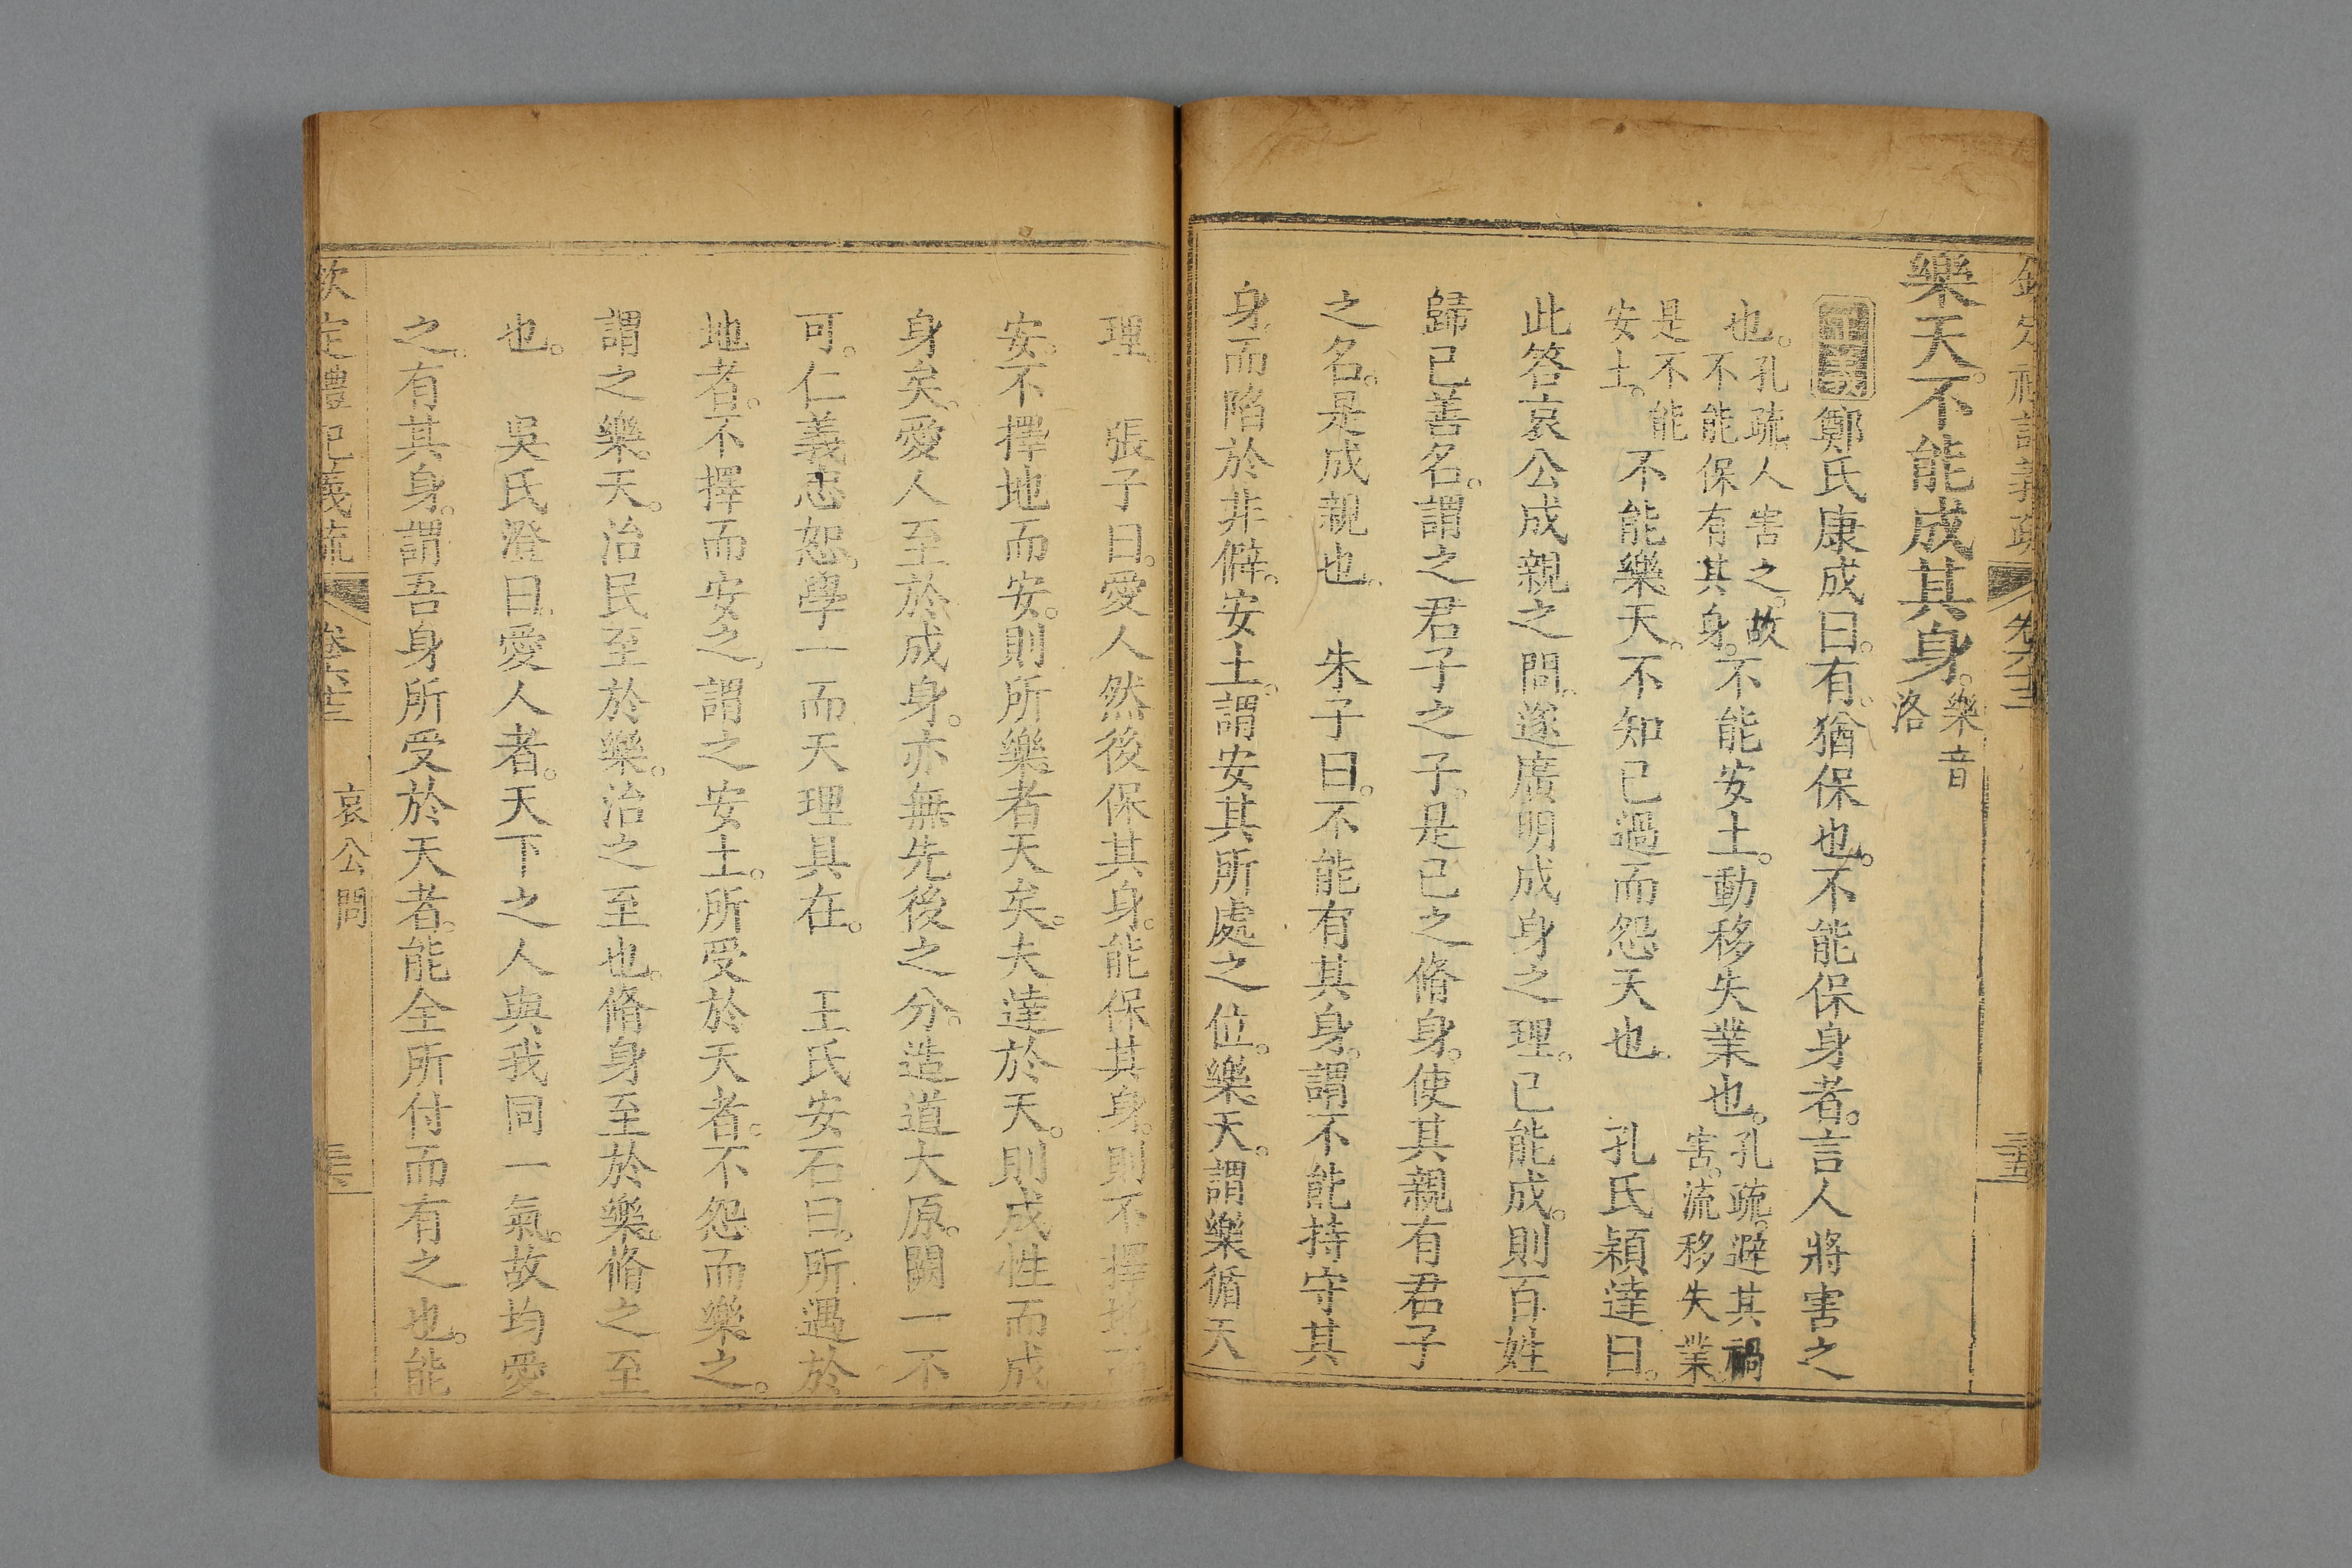 樂天。不能成其身。樂音洛
鄭氏康成曰。有。猶保也。不能保身者。言人將害之
也。孔疏。人害之。故不能保有其身。不能安土。動移失業也。孔疏。避其禍害。流移失業。
是不能安土。不能樂天。不知已過而怨天也 孔氏穎達曰。
此答哀公成親之問。遂廣明成身之理。已能成。則百姓
歸已善名。謂之君子之子。是已之脩身。使其親有君子
之名。是成親也 朱子曰。不能有其身。謂不能持守其
身。而陷於非僻。安土。謂安其所處之位。樂天。謂樂循天
理。 張子曰。愛人然後保其身。能保其身。則不擇地而
安。不擇地而安。則所樂者天矣。夫達於天。則成性而成
身矣。愛人至於成身。亦無先後之分。造道大原。闕一不
可。仁義忠恕。學一而天理具在。 王氏安石曰。所遇於
地者。不擇而安之。謂之安土。所受於天者。不怨而樂之。
謂之樂天。治民至於樂。治之至也。脩身至於樂。脩之至
也。 吳氏澄曰。愛人者。天下之人與我同一氣。故均愛
之。有其身。謂吾身所受於天者。能全所付而有之也。能
欽定禮記義疏 卷六十三 哀公問